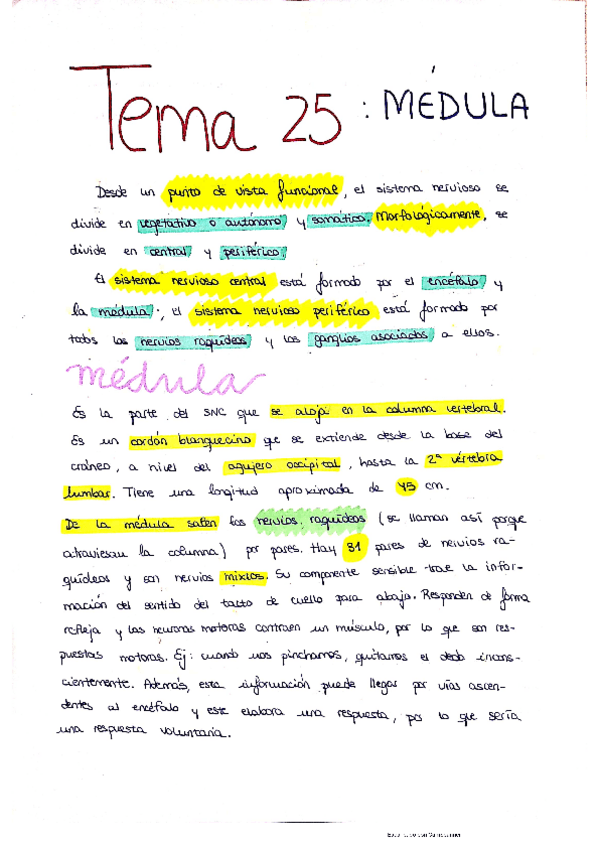 Tema 25: MÉDULA
Desde un punto de vista funcional, el sistema nervioso se
divide en vegetativo o autónomo y somático. Morfológicamente, se
divide en central y periférico.
El sistema nervioso central está formado por el encéfalo y
la médula; el sistema nervioso periférico está formado por
todos los nervios raquídeos y los ganglios asociados a ellos.
médula
Es la parte del SNC que se aloja en la columna vertebral.
Es un cordón blanquecino que se extiende desde la base del
cráneo, a nivel del agujero occipital, hasta la 2ª vértebra
lumbar. Tiene una longitud aproximada de 45 cm.
De la médula salen los nervios raquídeos (se llaman así porque
atraviesan la columna) por pares. Hay 31 pares de nervios ra-
quídeos y son nervios mixtos. Su componente sensible trae la infor-
mación del sentido del tacto de cuello para abajo. Responden de forma
refleja y las neuronas motoras contraen un músculo, por lo que son res-
puestas motoras. Ej: cuando nos pinchamos, quitamos el dedo incons-
cientemente. Además, esta información puede llegar por vías ascen-
dentes al encéfalo y este elabora una respuesta, por lo que sería
una respuesta voluntaria.